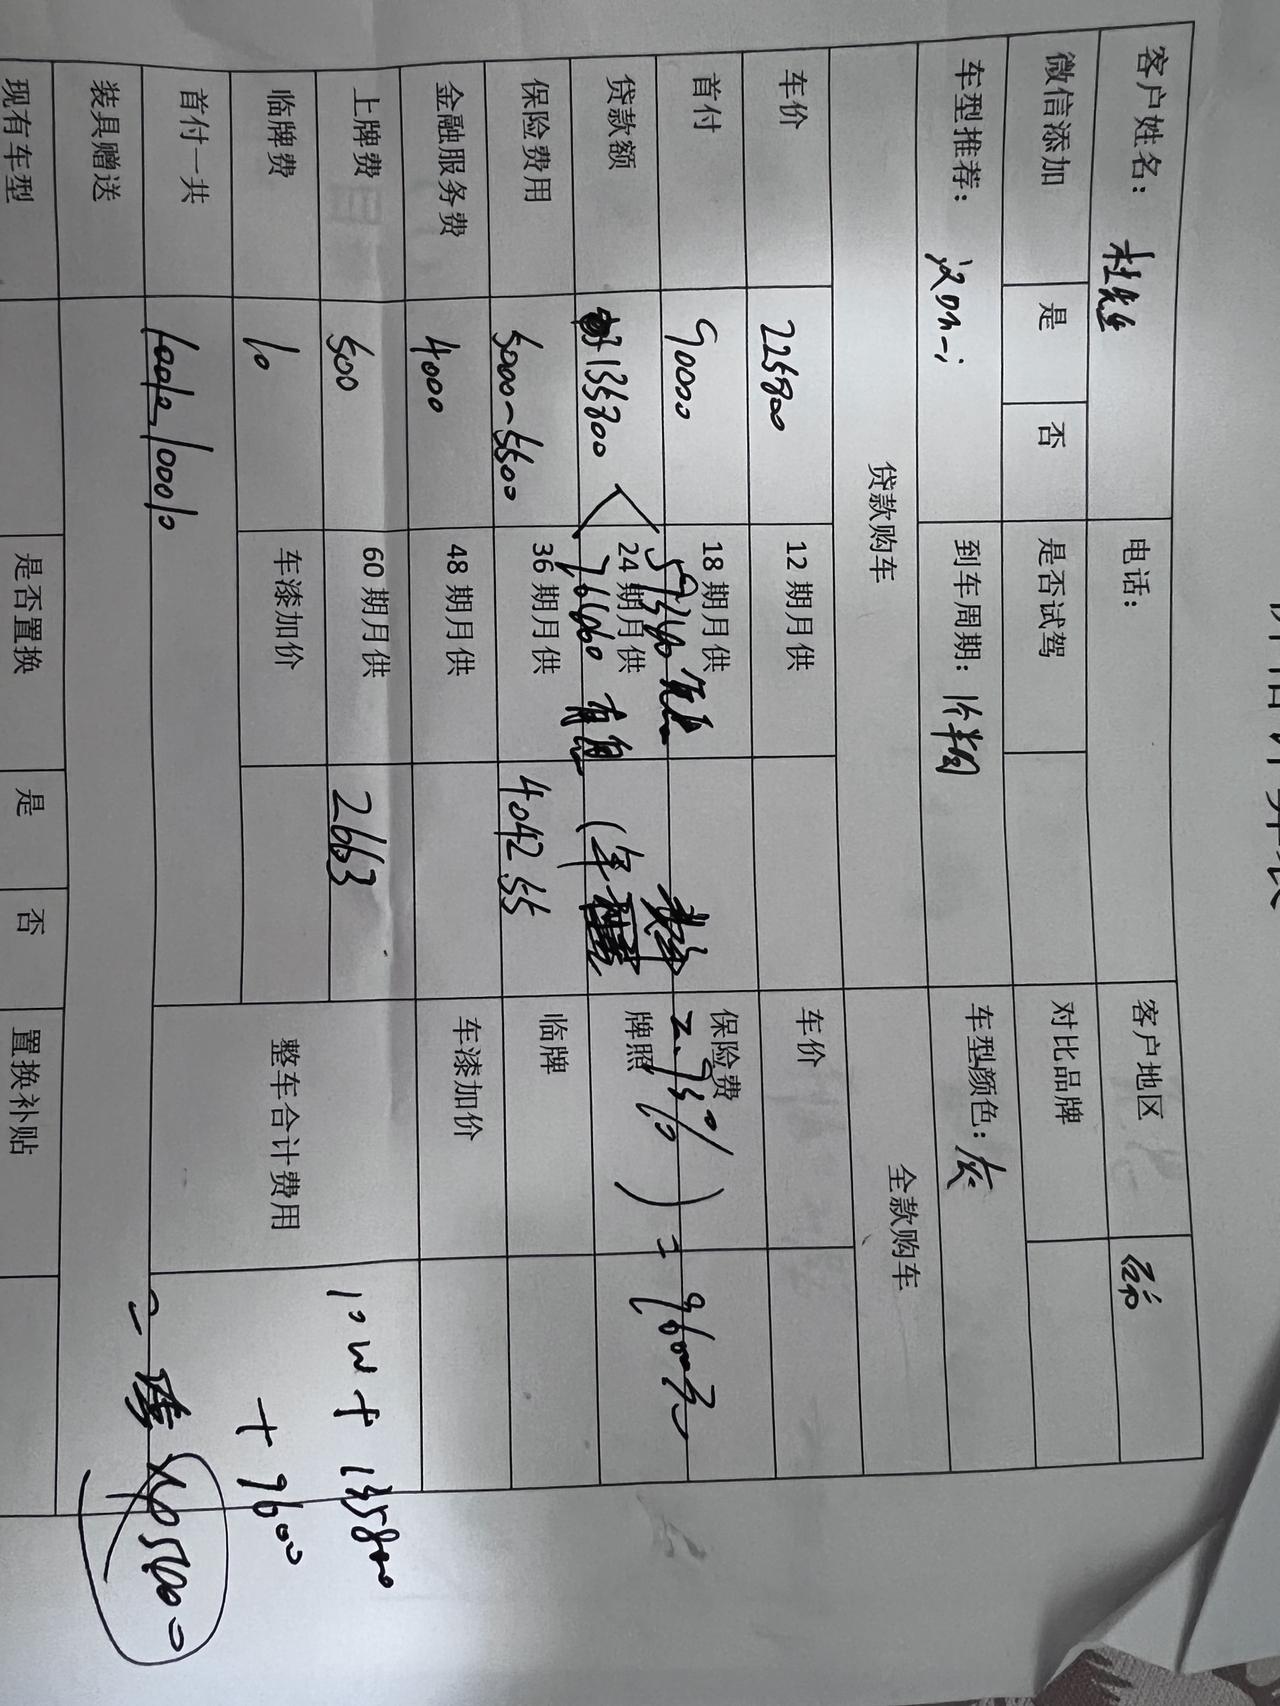 客户姓名： 杜先生 电话： 客户地区
微信添加 是 否 是否试驾 对比品牌
车型推荐： 汉DM-i 到车周期： 1个半月 车型颜色： 灰
贷款购车 全款购车
车价 225800 12期月供 车价
首付 90000 18期月供 保险费
贷款额 135800 24期月供 牌照
59340 无息
76460 有息 (年 费率 2.75%) = 9600元
保险费用 5000-5500 36期月供 4042.55 临牌
金融服务费 4000 48期月供 车漆加价
上牌费 500 60期月供 2663 整车合计费用
临牌费 10 车漆加价
10W + 135800
+ 9600
首付一共 10010
装具赠送
现有车型 是否置换 是 否 置换补贴